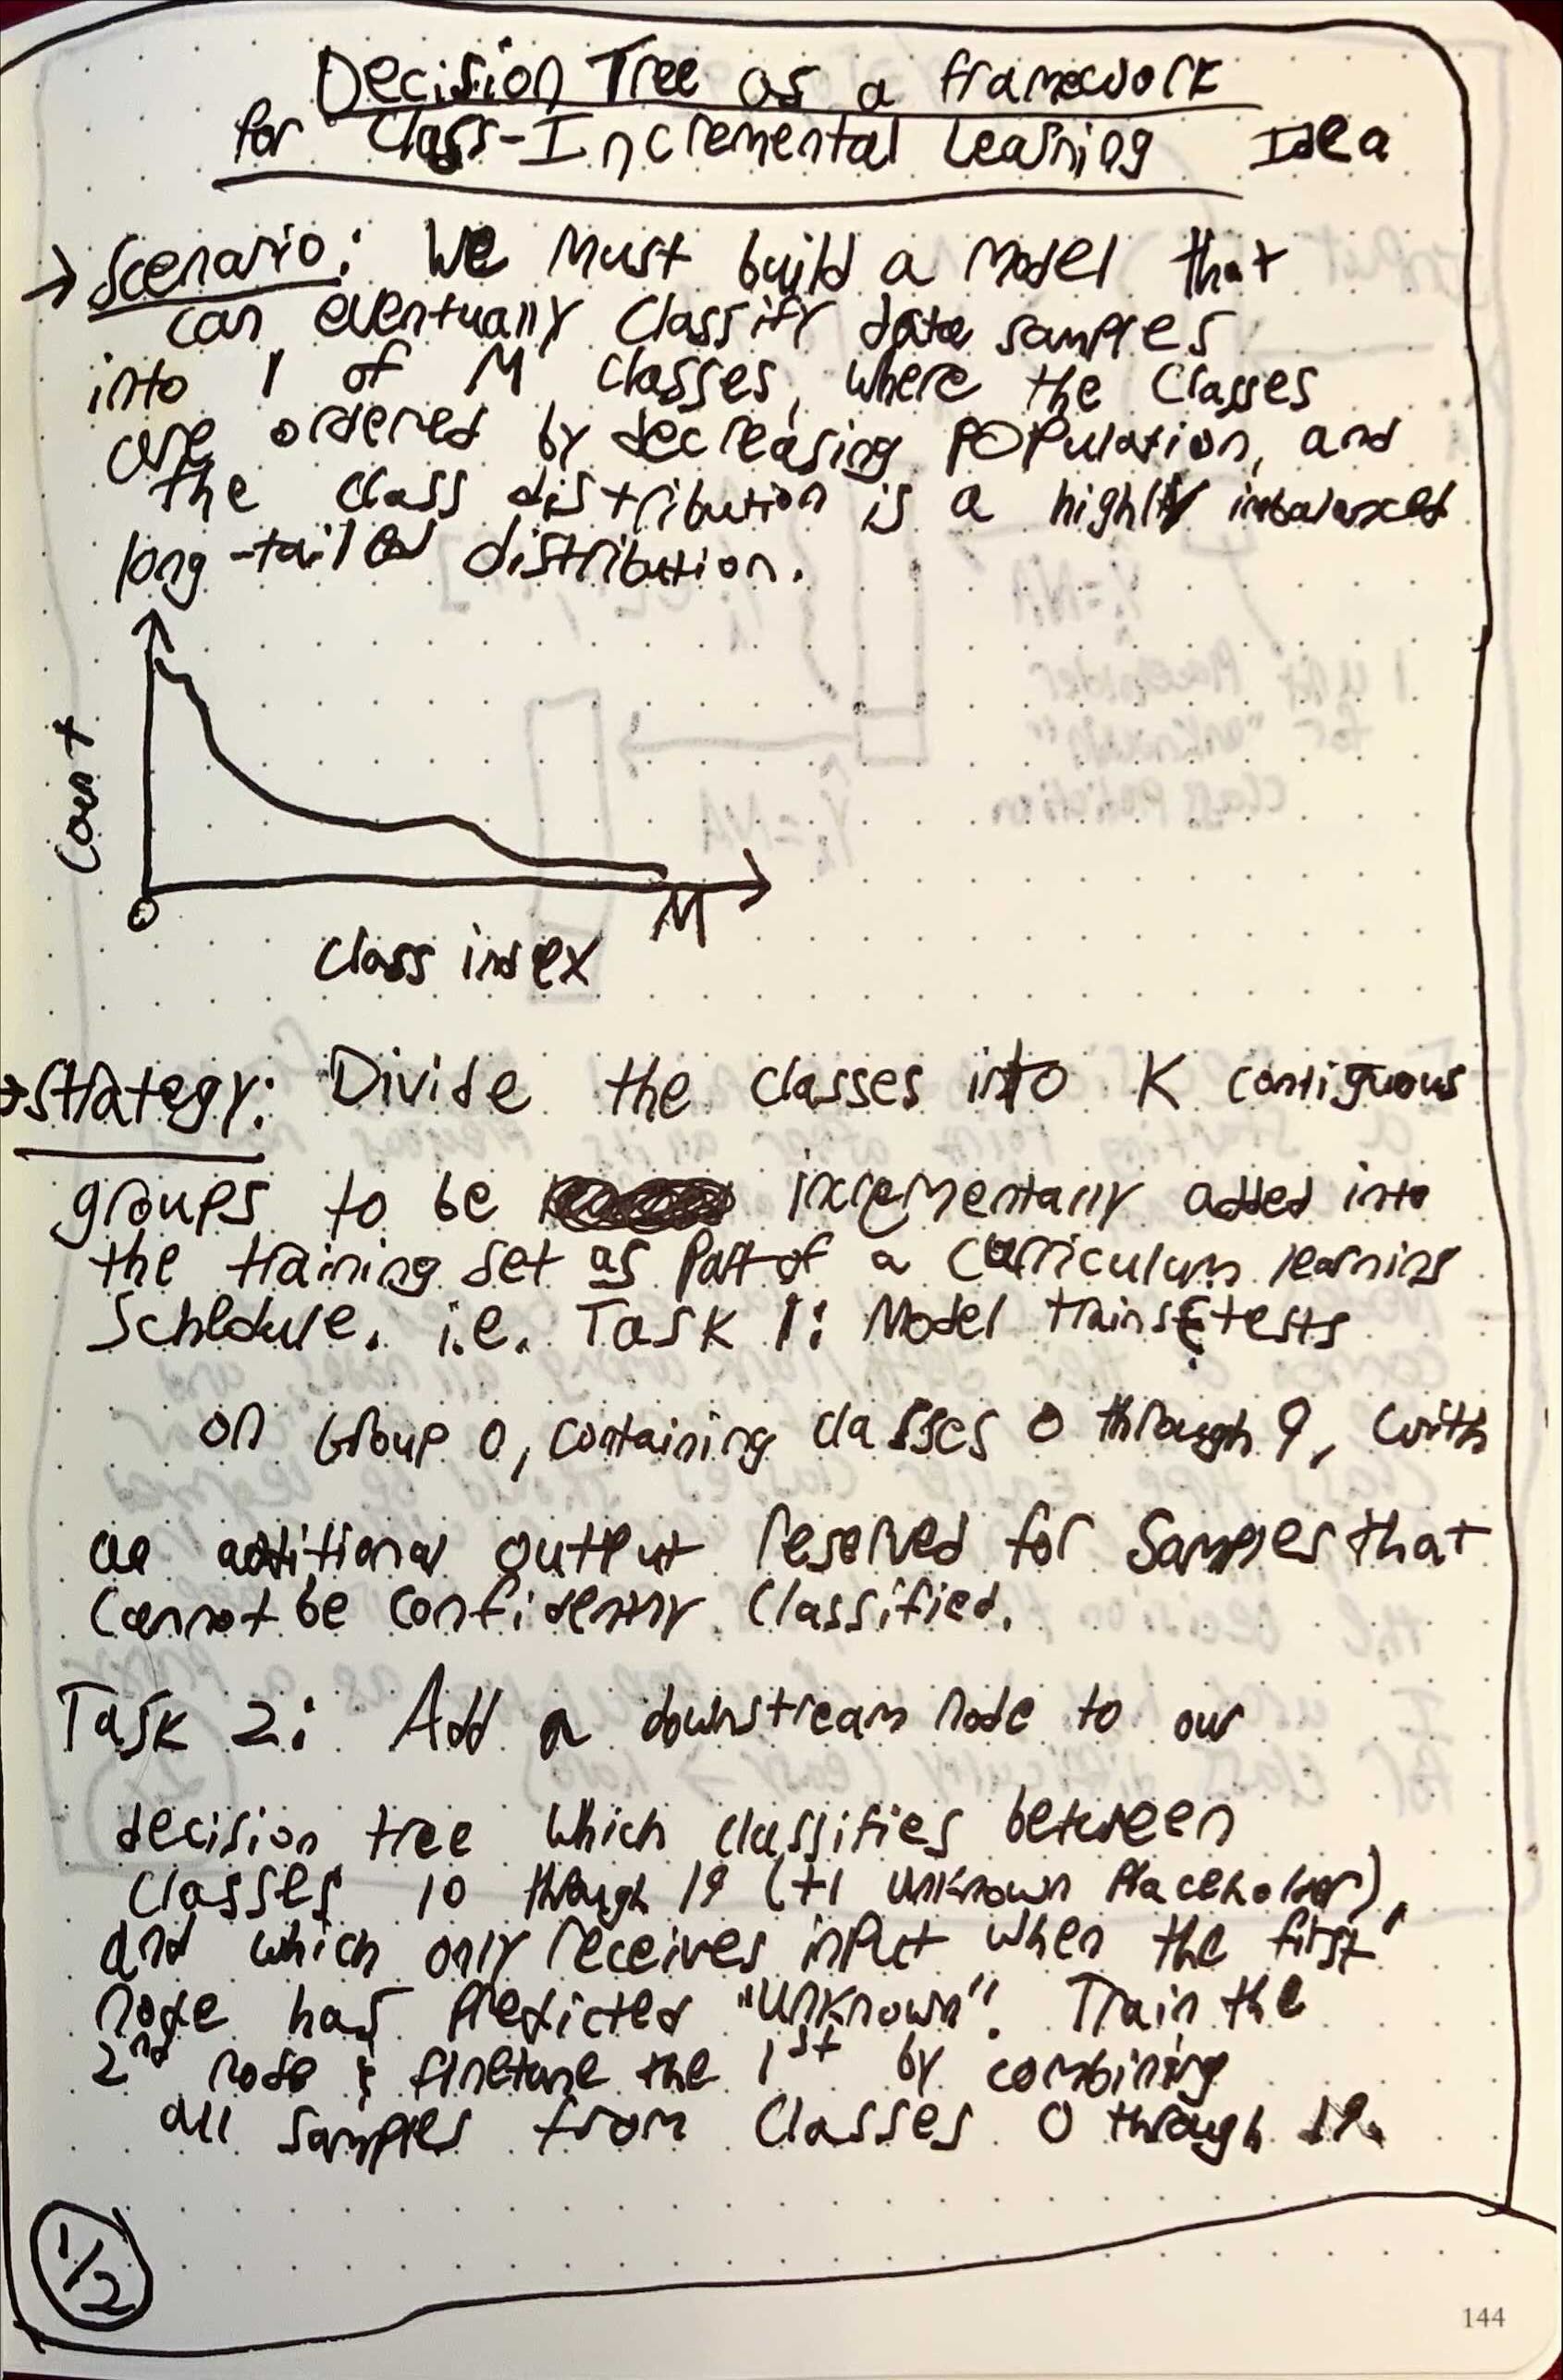 Decision Tree as a framework
for Class-Incremental Learning Idea
→ Scenario: We must build a model that
can eventually classify data samples
into 1 of M classes, where the classes
are ordered by decreasing population, and
the class distribution is a highly imbalanced
long-tailed distribution.
Count
0
M
class index
→ Strategy: Divide the classes into K contiguous
groups to be incrementally added into
the training set as part of a curriculum learning
schedule. i.e. Task 1: Model trains & tests
on Group 0, containing classes 0 through 9, with
an additional output reserved for samples that
cannot be confidently classified.
Task 2: Add a downstream node to our
decision tree which classifies between
classes 10 through 19 (+1 unknown placeholder),
and which only receives input when the first
node has predicted "unknown". Train the
2nd node & finetune the 1st by combining
all samples from classes 0 through 19.
1/2
144